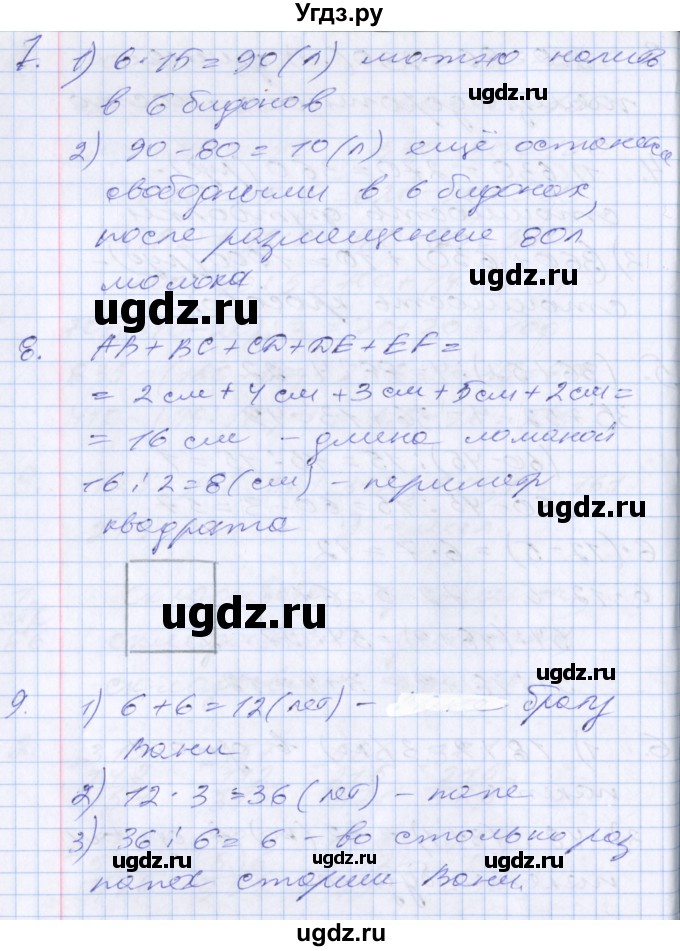 Угдз.ру
7. 1) 6 · 15 = 90 (л) можно налить
в 6 бидонов
ugdz.ru
2) 90 - 80 = 10 (л) ещё останется
свободными в 6 бидонах,
после размещение 80л
молока.
ugdz.ru
ugdz.ru
8. AB + BC + CD + DE + EF =
= 2 см + 4 см + 3 см + 5 см + 2 см =
= 16 см - длина ломаной
16 : 2 = 8 (см) - периметр
ugdz.ru
квадрата
ugdz.ru
9. 1) 6 + 6 = 12 (лет) - брату
ugdz.ru
Вани
2) 12 · 3 = 36 (лет) - папе
3) 36 : 6 = 6 - во столько раз
ugdz.ru ugdz.ru ugdz.ru
папа старше Вани.
ugdz.ru